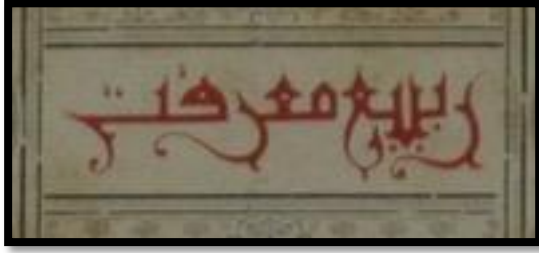 ربيع معرفت